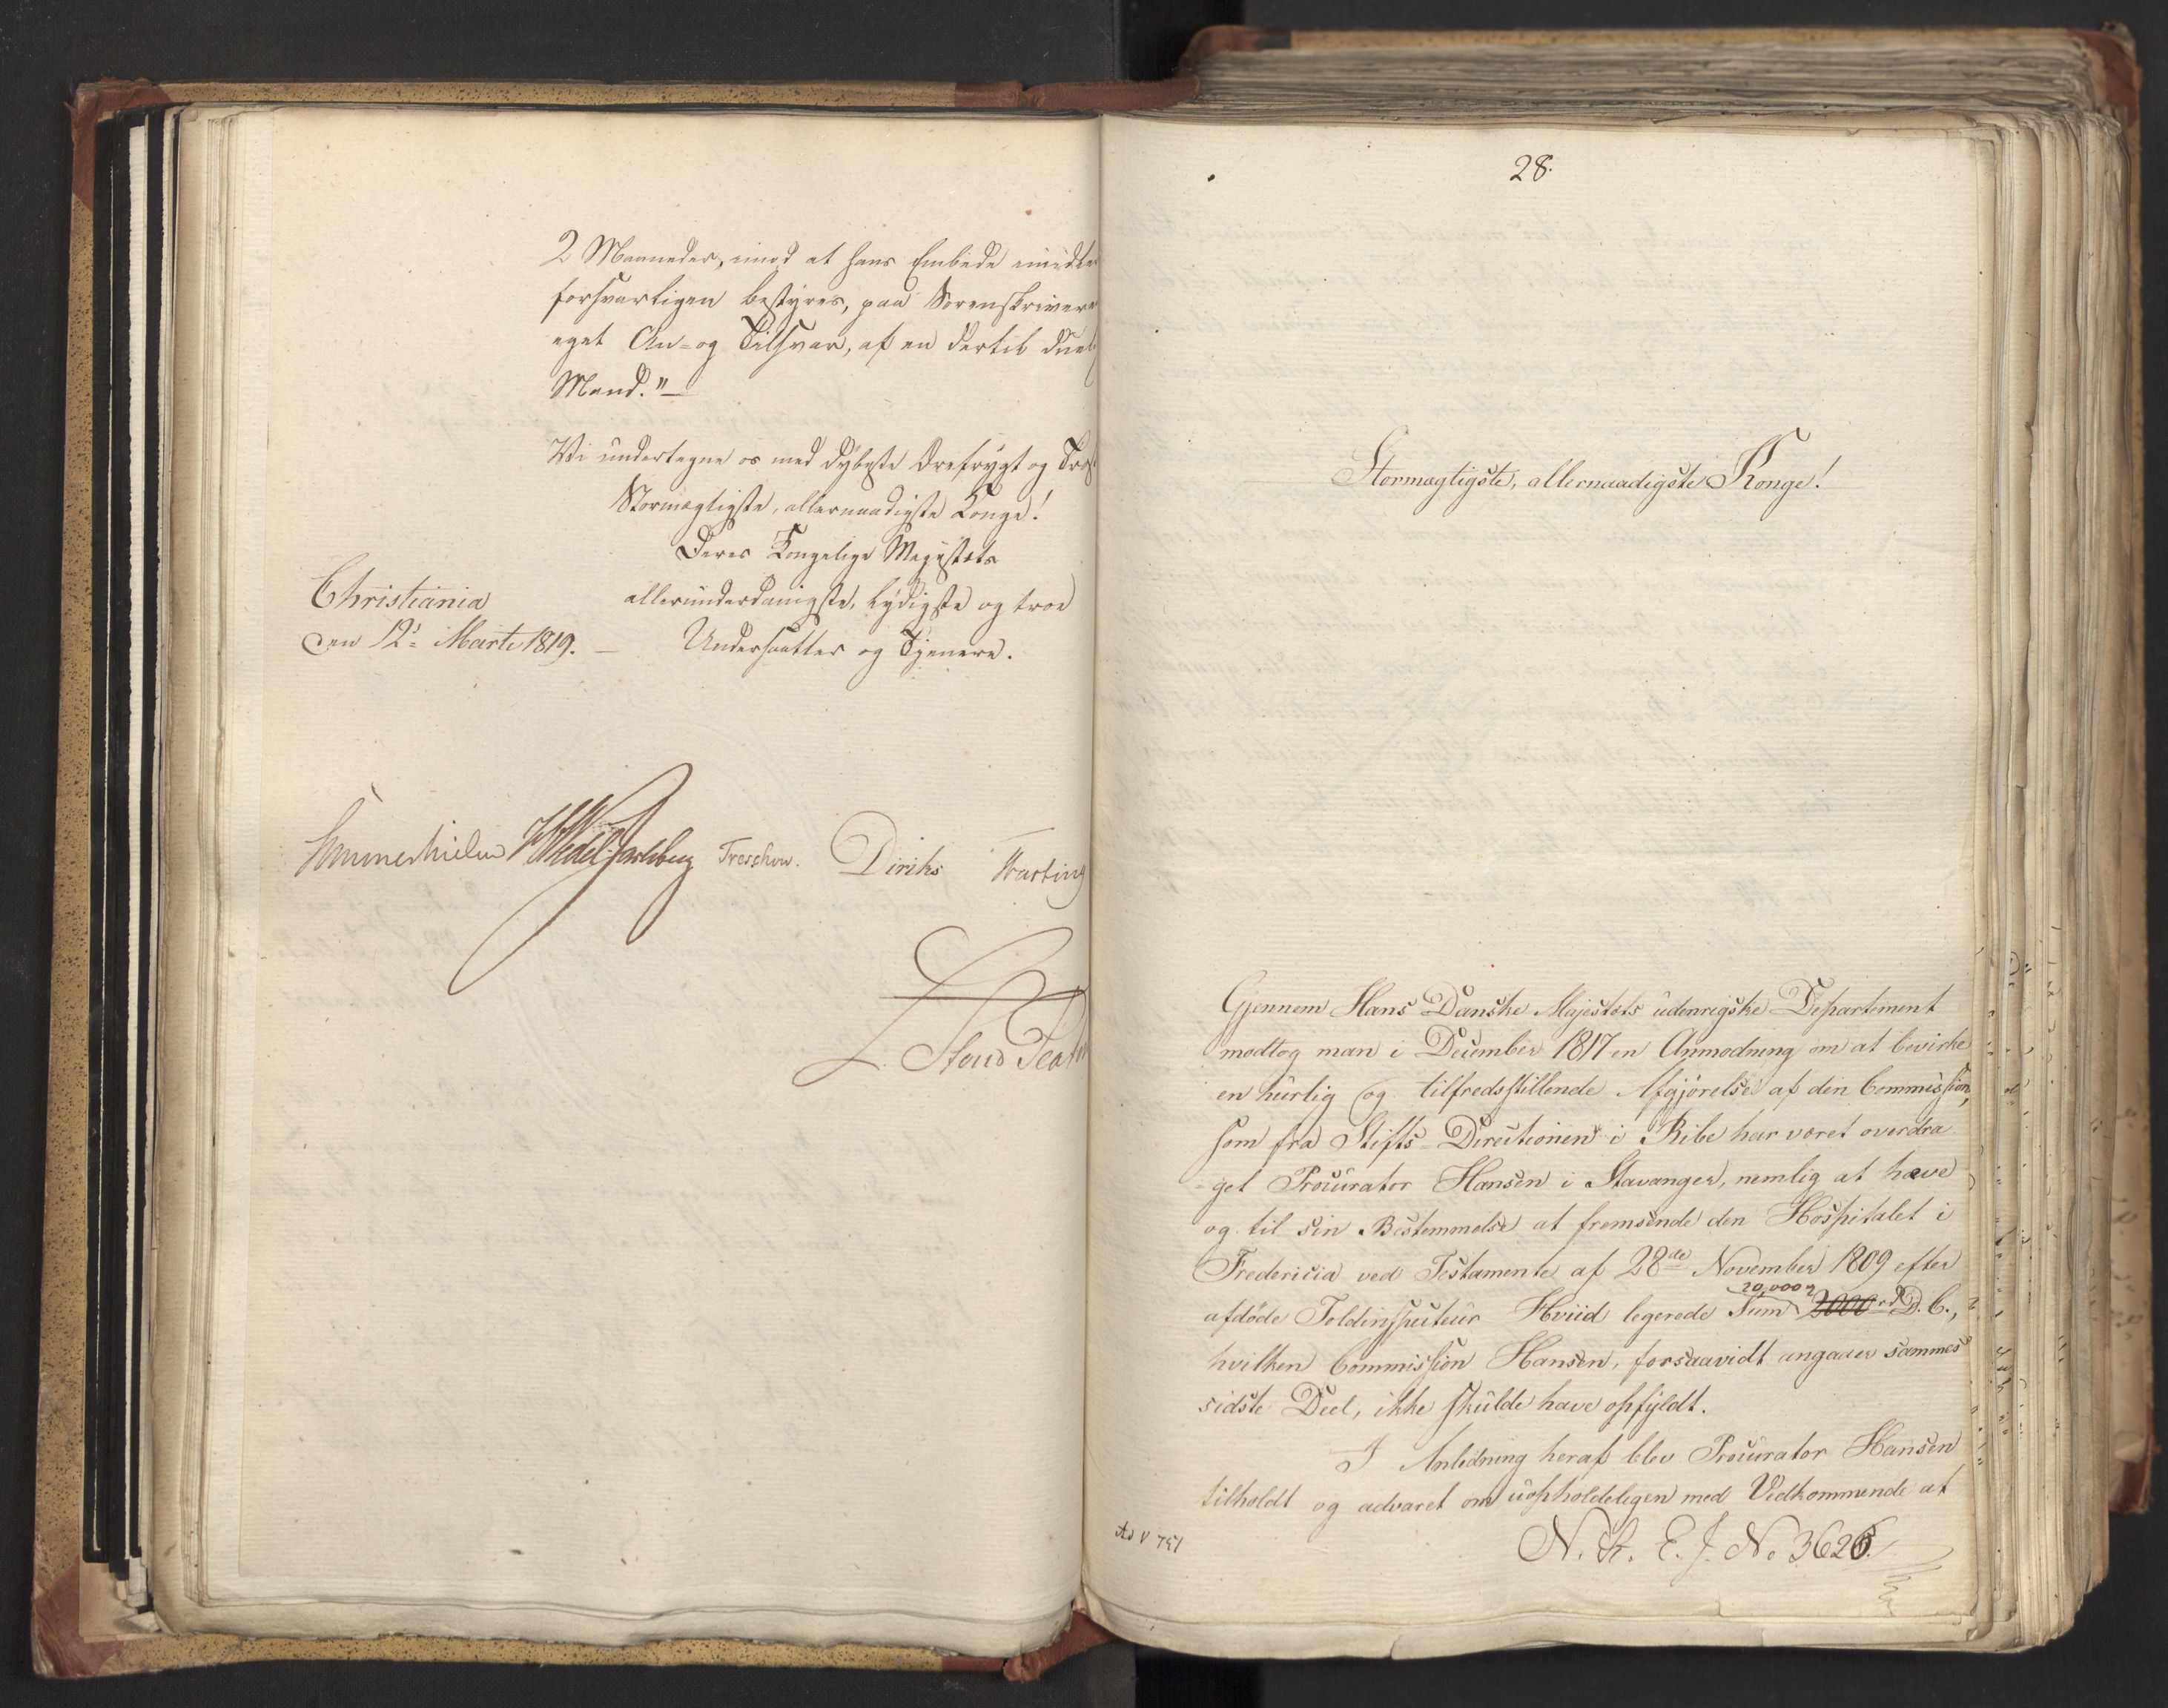 2 Maaneder, imod at hans Embede imidler
forsvarligen bestyres, paa Sorenskriverens
eget An- og Tilsvar, af en dertil duel
Mand."—
Vi undertegne os med dybeste Ærefrygt og Troe
Stormægtigste, allernaadigste Konge!
Deres Kongelige Majestæts
allerunderdanigste, lydigste og troe
Undersaatter og Tjenere.
Christiania
den 12te Marts 1819. —
Sommerhielm HWedel Jarlsberg Treschow. Diriks Hasting
28.
Stormægtigste, allernaadigste Konge!
Gjennem Hans Danske Majestæts udenrigske Departement
modtog man i December 1817 en Anmodning om at bevirke
en hurtig og tilfredsstillende Afgjörelse af den Commission,
som fra Stifts-Directionen i Ribe har været overdra-
get Procurator Hansen i Stavanger, nemlig at hæve
og til sin Bestemmelse at fremsende den Hospitalet i
Fredericia ved Testamente af 28de November 1809 efter
20,000
afdöde Toldinspecteur Hviid legerede Sum 2000 rd D. C.,
hvilken Commission Hansen, forsaavidt angaaer sammes
sidste Deel, ikke skulde have opfyldt.
I Anledning heraf blev Procurator Hansen
tilholdt og advaret om uopholdeligen med Vedkommende at
N. R. E. J. No 3626.